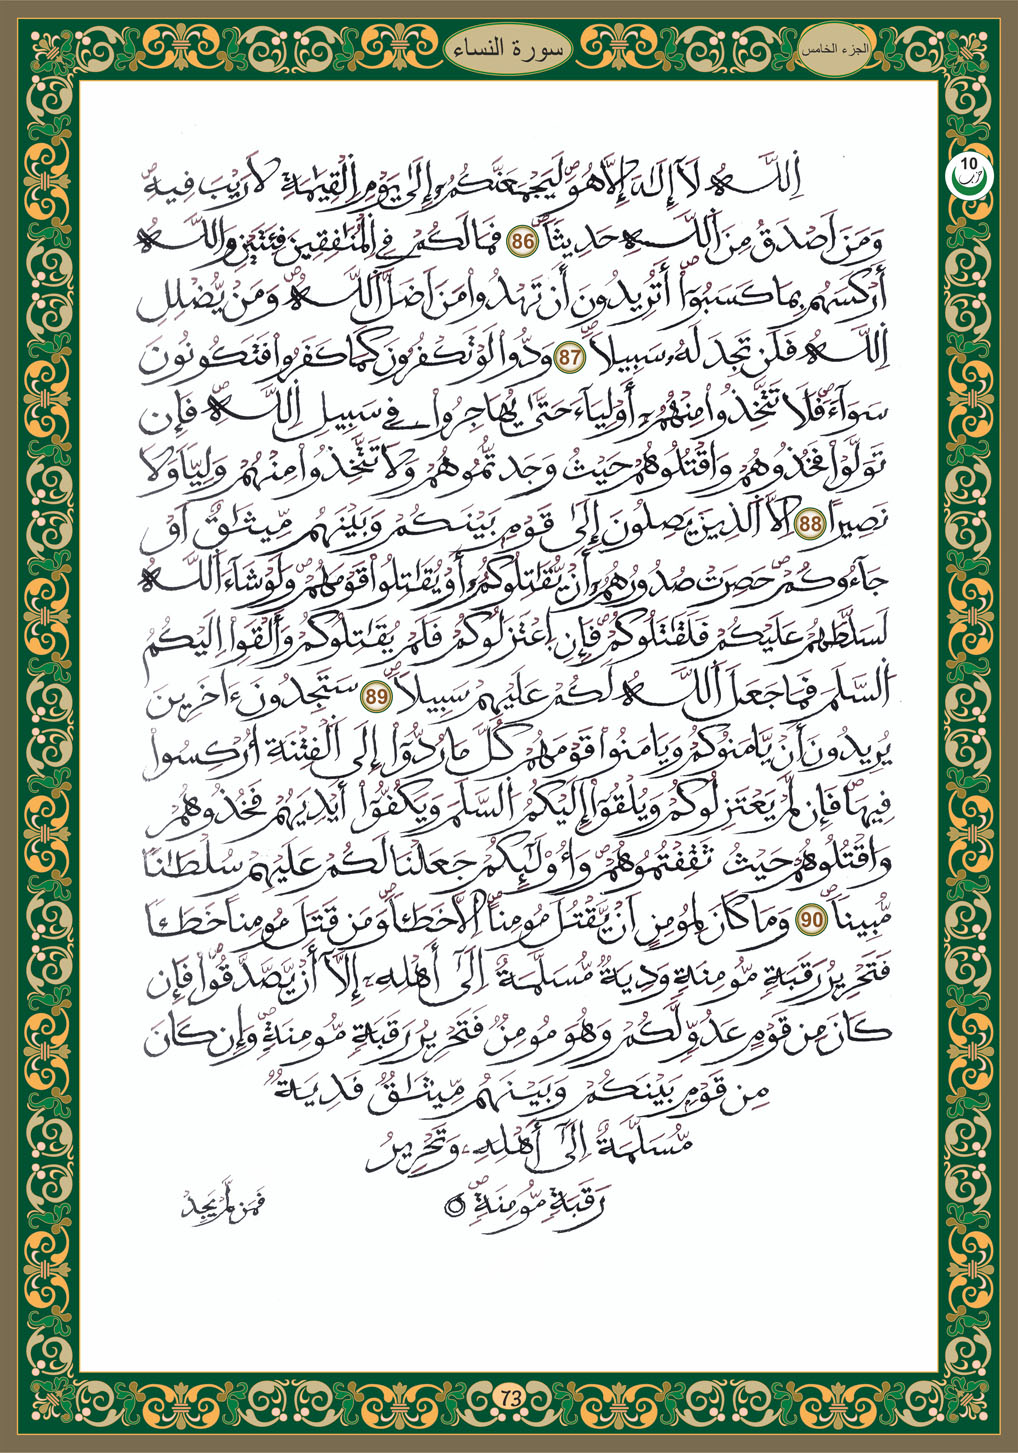 الجزء الخامس
سورة النساء
10
حزب
اِ۬للَّهُ لَآ إِلَٰهَ إِلَّا هُوَۖ لَيَجْمَعَنَّكُمُۥٓ إِلَىٰ يَوْمِ اِ۬لْقِيَٰمَةِ لَا رَيْبَ فِيهِۖ
وَمَنَ اَصْدَقُ مِنَ اَ۬للَّهِ حَدِيثاٗۖ 86 فَمَا لَكُمْ فِے اِ۬لْمُنَٰفِقِينَ فِئَتَيْنِ وَاللَّهُ
أَرْكَسَهُم بِمَا كَسَبُوٓاْۖ أَتُرِيدُونَ أَن تَهْدُواْ مَنَ اَضَلَّ اَ۬للَّهُۖ وَمَنْ يُّضْلِلِ
اِ۬للَّهُ فَلَن تَجِدَ لَهُۥ سَبِيلاٗۖ 87 وَدُّواْ لَوْ تَكْفُرُونَ كَمَا كَفَرُواْ فَتَكُونُونَ
سَوَآءٗۖ فَلَا تَتَّخِذُواْ مِنْهُمُۥٓ أَوْلِيَآءَ حَتَّىٰ يُهَاجِرُواْ فِے سَبِيلِ اِ۬للَّهِۖ فَإِن
تَوَلَّوْاْ فَخُذُوهُمْ وَاقْتُلُوهُمْ حَيْثُ وَجَدتُّمُوهُمْ وَلَا تَتَّخِذُواْ مِنْهُمْ وَلِيّاٗ وَلَا
نَصِيراً 88 اِلَّا اَ۬لذِينَ يَصِلُونَ إِلَىٰ قَوْمِۢ بَيْنَكُمْ وَبَيْنَهُم مِّيثَٰقٌ اَوْ
جَآءُوكُمْۖ حَصِرَتْ صُدُورُهُمُۥٓ أَنْ يُّقَٰتِلُوكُمُۥٓ أَوْ يُقَٰتِلُواْ قَوْمَهُمْۖ وَلَوْ شَآءَ اَ۬للَّهُ
لَسَلَّطَهُمْ عَلَيْكُمْ فَلَقَٰتَلُوكُمْۖ فَإِنِ اِ۪عْتَزَلُوكُمْ فَلَمْ يُقَٰتِلُوكُمْ وَأَلْقَوِاْ اِلَيْكُمُ
اُ۬لسَّلَمَ فَمَا جَعَلَ اَ۬للَّهُ لَكُمْ عَلَيْهِمْ سَبِيلاٗۖ 89 سَتَجِدُونَ ءَاخَرِينَ
يُرِيدُونَ أَنْ يَّامَنُوكُمْ وَيَامَنُواْ قَوْمَهُمْ كُلَّ مَا رُدُّوٓاْ إِلَى اَ۬لْفِتْنَةِ أُرْكِسُواْ
فِيهَاۖ فَإِن لَّمْ يَعْتَزِلُوكُمْ وَيُلْقُوٓاْ إِلَيْكُمُ اُ۬لسَّلَمَ وَيَكُفُّوٓاْ أَيْدِيَهُمْ فَخُذُوهُمْ
وَاقْتُلُوهُمْ حَيْثُ ثَقِفْتُمُوهُمْۖ وَأُوْلَٰٓئِكُمْ جَعَلْنَا لَكُمْ عَلَيْهِمْ سُلْطَٰناٗ
مُّبِيناٗۖ 90 وَمَا كَانَ لِمُومِنٍ اَنْ يَّقْتُلَ مُومِناً اِلَّا خَطَـٔاٗۖ وَمَن قَتَلَ مُومِناً خَطَـٔاٗ
فَتَحْرِيرُ رَقَبَةٖ مُّومِنَةٖ وَدِيَةٞ مُّسَلَّمَةٌ اِلَىٰٓ أَهْلِهِۦٓ إِلَّآ أَنْ يَّصَّدَّقُواْۖ فَإِن
كَانَ مِن قَوْمٍ عَدُوّٖ لَّكُمْ وَهُوَ مُومِنٞ فَتَحْرِيرُ رَقَبَةٖ مُّومِنَةٖۖ وَإِن كَانَ
مِن قَوْمِۢ بَيْنَكُمْ وَبَيْنَهُم مِّيثَٰقٞ فَدِيَةٞ
مُّسَلَّمَةٌ اِلَىٰٓ أَهْلِهِۦ وَتَحْرِيرُ
رَقَبَةٖ مُّومِنَةٖۖ
فَمَن لَّمْ يَجِدْ
73